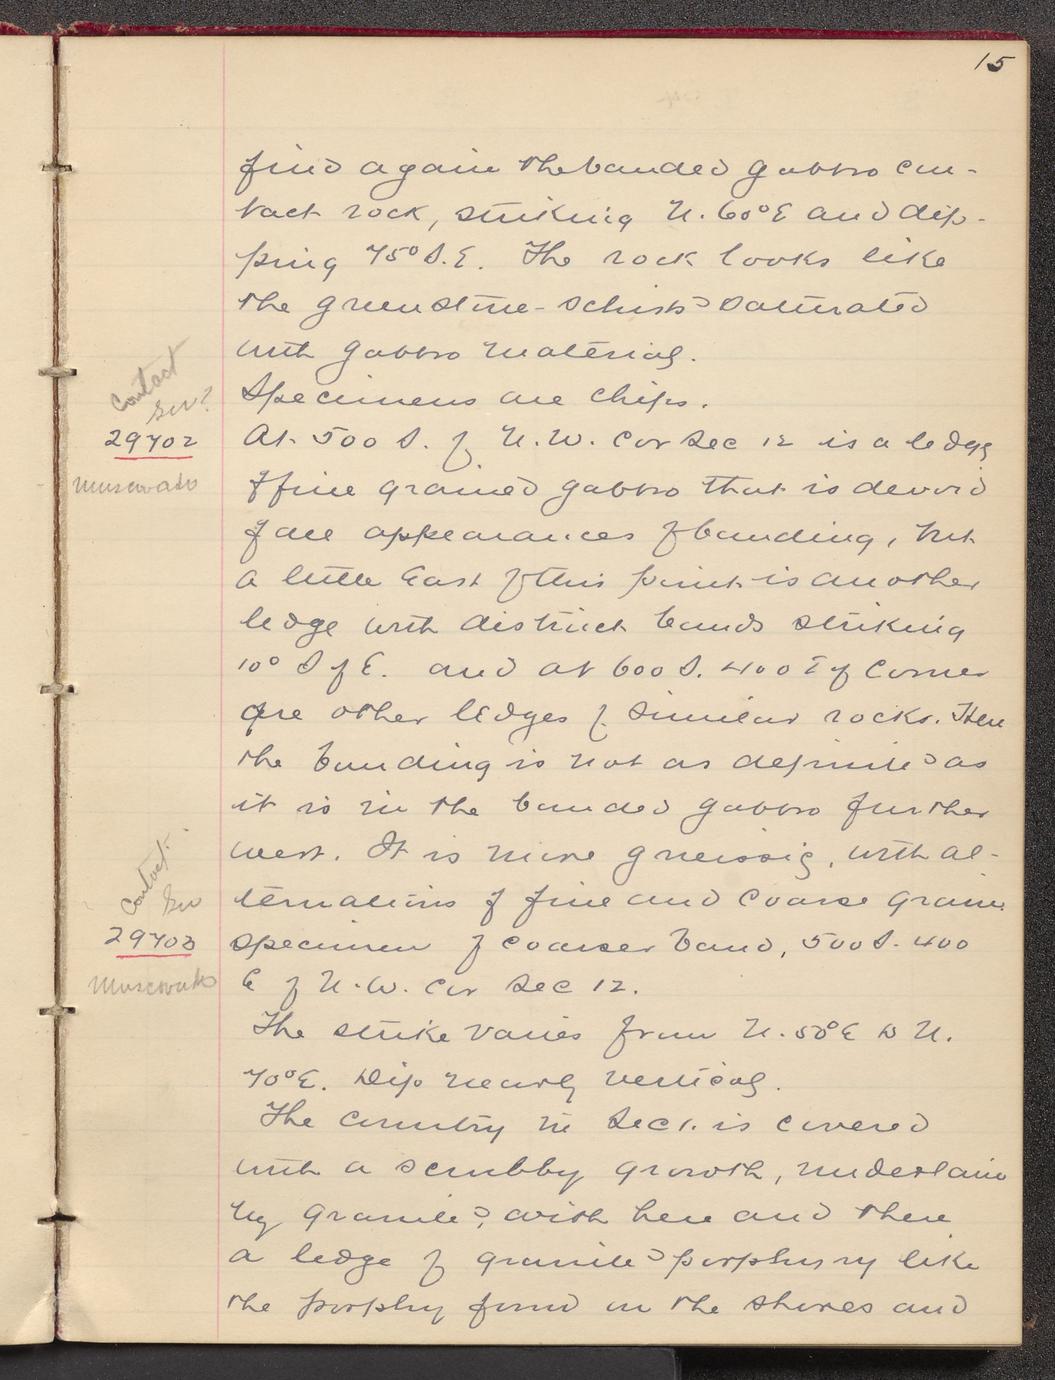 15
find again the banded gabbro con-
tact rock, striking N. 60°E and dip-
ping 75° S.E. The rock looks like
the greenstone-schists saturated
with gabbro material.
Contact
Specimens are chips.
29702
At 500 S. of N.W. Cor Sec 12 is a ledge
Muscovado
of fine grained gabbro that is devoid
of all appearances of banding, but
a little East of this point is another
ledge with distinct bands striking
10° S of E. and at 600 S. 400 E of Corner
are other ledges of similar rocks. Here
the banding is not as definite as
it is in the banded gabbro further
west. It is more gneissic, with al-
Contact.
ternations of fine and coarse grain.
29703
Specimen of coarser band, 500 S. 400
Muscovado
E of N.W. Cor Sec 12.
The strike varies from N. 50°E to N.
70°E. Dip nearly vertical.
The country in Sec 1. is covered
with a scrubby growth, underlain
by granite, with here and there
a ledge of granite porphyry like
the porphy found on the shores and